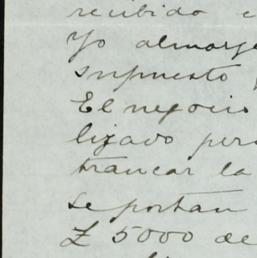 recibido e
Yo almorge
supuesto
El negocio
lizado pero
trancar la
se portan
£ 5000 de